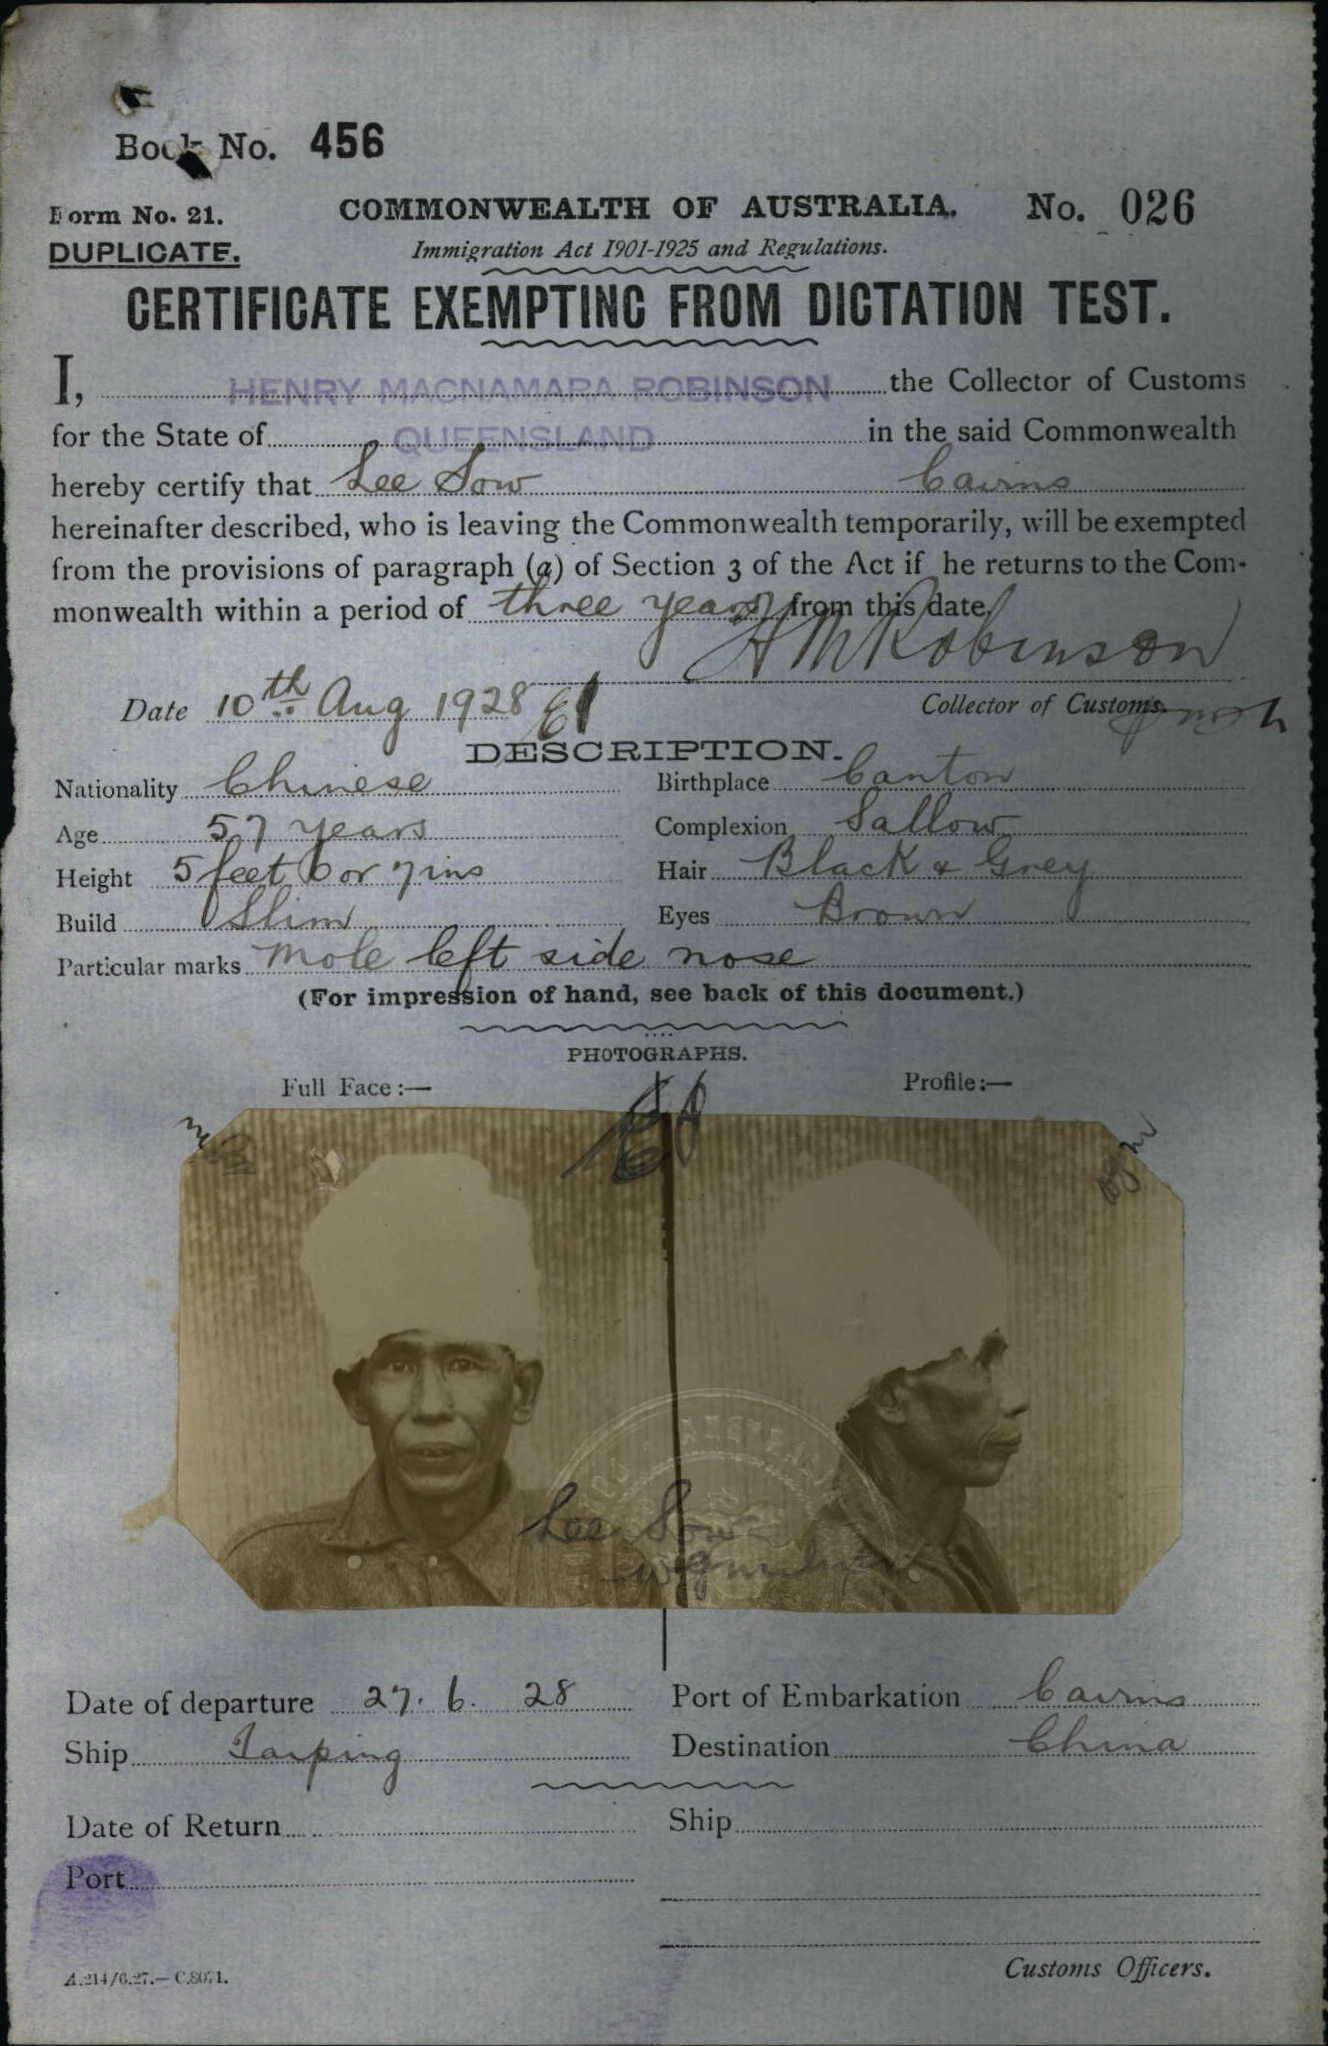 Book No. 456
Form No. 21. COMMONWEALTH OF AUSTRALIA. No. 026
DUPLICATE. Immigration Act 1901-1925 and Regulations.
CERTIFICATE EXEMPTING FROM DICTATION TEST.
I, HENRY MACNAMARA ROBINSON the Collector of Customs
for the State of QUEENSLAND in the said Commonwealth
hereby certify that Lee Sow Cairns
hereinafter described, who is leaving the Commonwealth temporarily, will be exempted
from the provisions of paragraph (a) of Section 3 of the Act if he returns to the Com-
monwealth within a period of three years from this date.
H M Robinson
Date 10th Aug 1928 Collector of Customs.
DESCRIPTION.
Nationality Chinese Birthplace Canton
Age 57 years Complexion Sallow
Height 5 feet 6 or 7 ins Hair Black & Grey
Build Slim Eyes Brown
Particular marks Mole left side nose
(For impression of hand, see back of this document.)
PHOTOGRAPHS.
Full Face:— Profile:—
Lee Sow
Date of departure 27. 6. 28 Port of Embarkation Cairns
Ship Taiping Destination China
Date of Return Ship
Port
Customs Officers.
A.214/6.27.—C.8071.